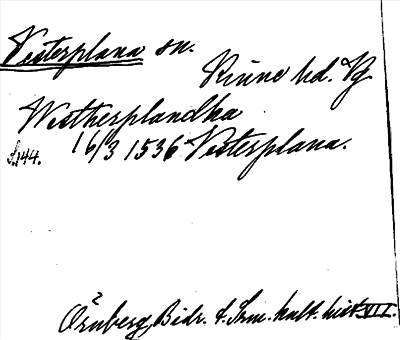 Vesterplana sn.
Kinne hd. Vg.
Westherplandha
S.144. 16/3 1536 Vesterplana.
Örnberg, Bidr. t. Srm. kult. hist VII.